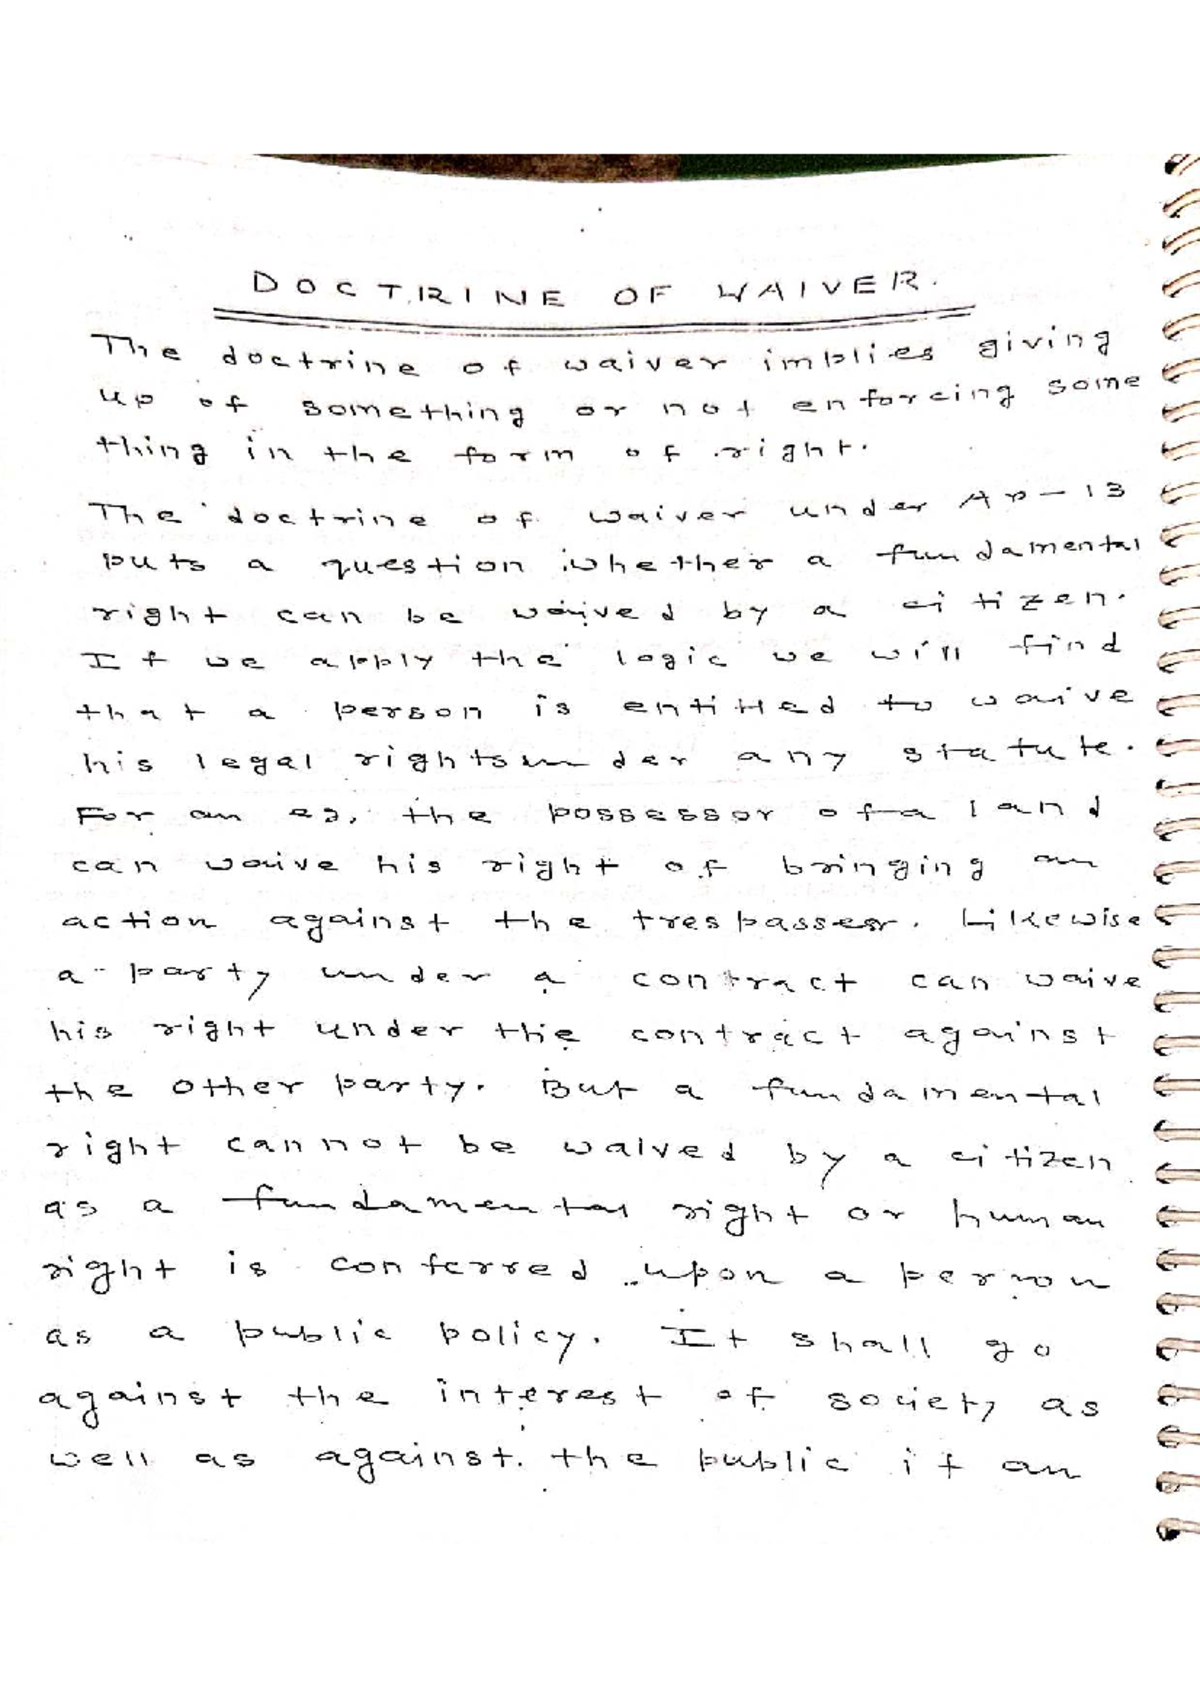 DOCTRINE OF WAIVER.
The doctrine of waiver implies giving
up of something or not enforcing some
thing in the form of right.
The doctrine of waiver under Ar-13
puts a question whether a fundamental
right can be waived by a citizen.
If we apply the logic we will find
that a person is entitled to waive
his legal rights under any statute.
For an eg. the possessor of a land
can waive his right of bringing an
action against the trespasser. Likewise
a party under a contract can waive
his right under the contract against
the other party. But a fundamental
right cannot be waived by a citizen
as a fundamental right or human
right is conferred upon a person
as a public policy. It shall go
against the interest of society as
well as against the public if an